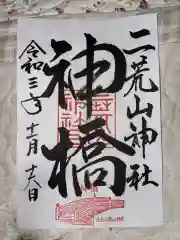 二荒山神社
神橋
令和三年十一月十六日